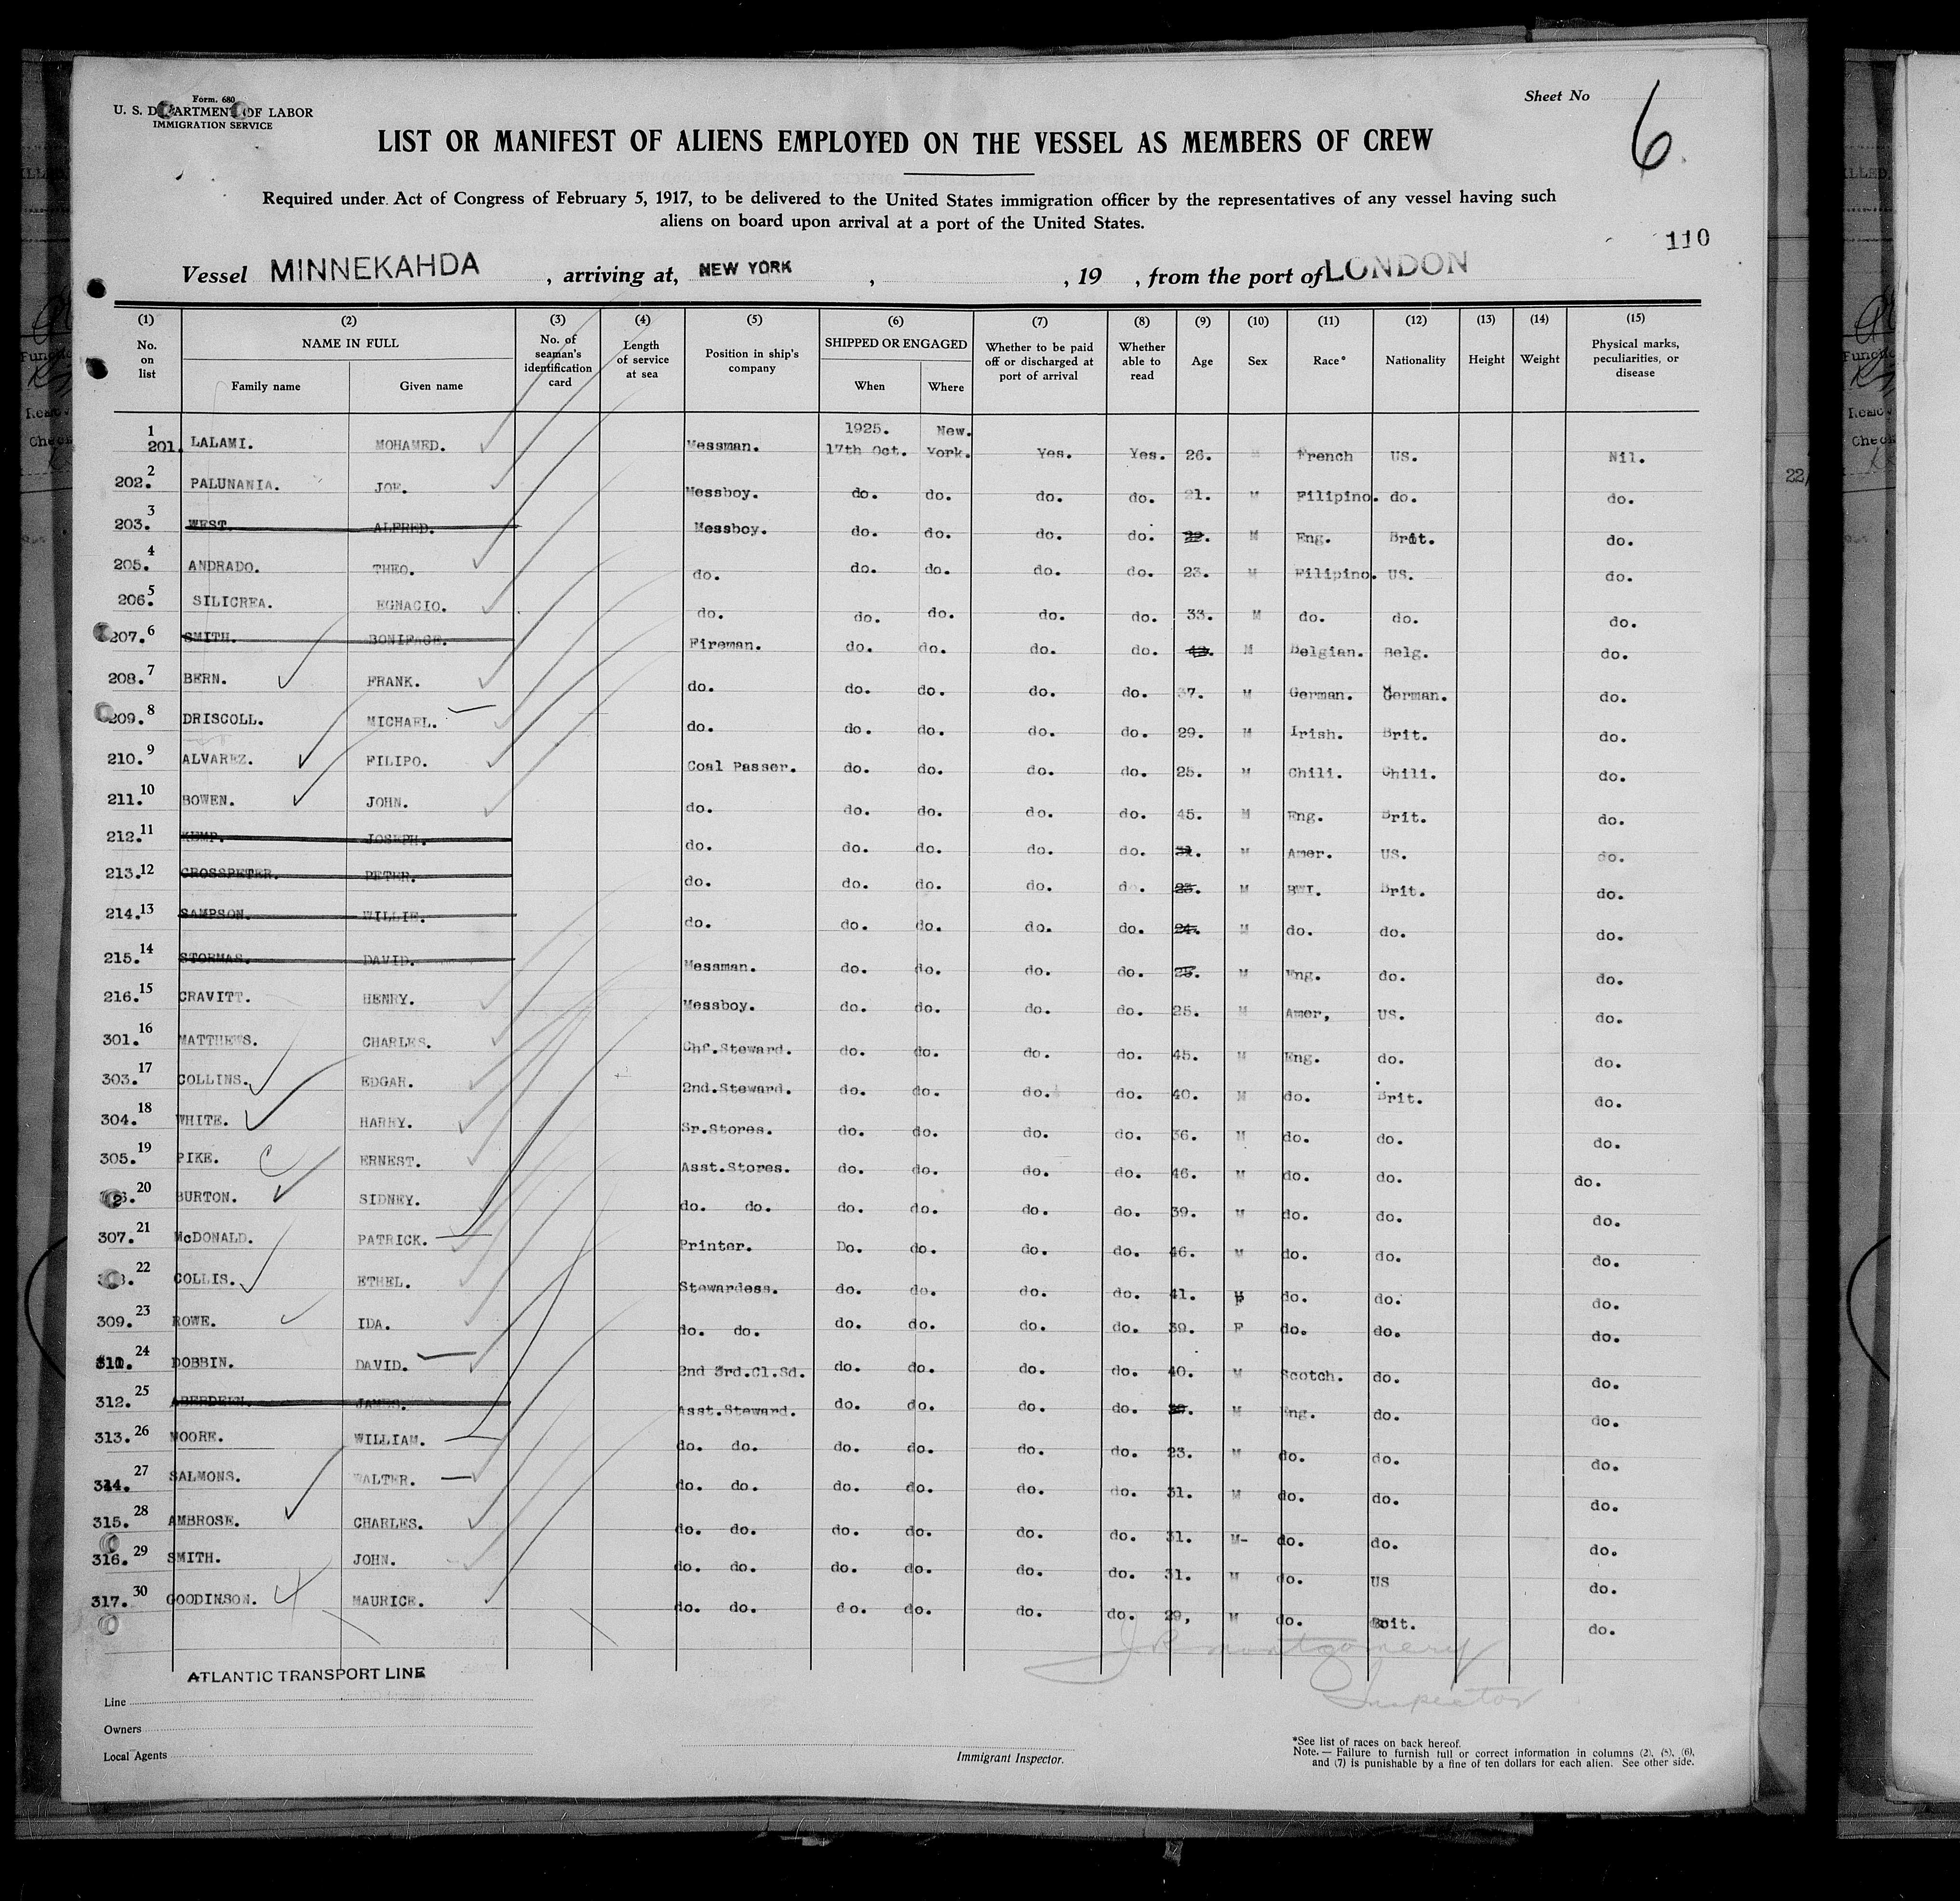 Form. 680
U. S. DEPARTMENT OF LABOR
IMMIGRATION SERVICE
Sheet No 6
LIST OR MANIFEST OF ALIENS EMPLOYED ON THE VESSEL AS MEMBERS OF CREW
Required under Act of Congress of February 5, 1917, to be delivered to the United States immigration officer by the representatives of any vessel having such
aliens on board upon arrival at a port of the United States.
110
Vessel MINNEKAHDA , arriving at, NEW YORK , , 19 , from the port of LONDON
(1) (2) (3) (4) (5) (6) (7) (8) (9) (10) (11) (12) (13) (14) (15)
No. on list NAME IN FULL Family name Given name No. of seaman's identification card Length of service at sea Position in ship's company SHIPPED OR ENGAGED When Where Whether to be paid off or discharged at port of arrival Whether able to read Age Sex Race* Nationality Height Weight Physical marks, peculiarities, or disease
1 201. LALAMI. MOHAMED. Messman. 1925. 17th Oct. New. York. Yes. Yes. 26. M French US. Nil.
2 202. PALUNANIA. JOE. Messboy. do. do. do. do. 21. M Filipino. do. do.
3 203. WEST. ALFRED. Messboy. do. do. do. do. 22. M Eng. Brit. do.
4 205. ANDRADO. THEO. do. do. do. do. do. 23. M Filipino. US. do.
5 206. SILICREA. EGNACIO. do. do. do. do. do. 33. M do. do. do.
6 207. SMITH. BONIFACE. Fireman. do. do. do. do. 43. M Belgian. Belg. do.
7 208. BERN. FRANK. do. do. do. do. do. 37. M German. German. do.
8 209. DRISCOLL. MICHAEL. do. do. do. do. do. 29. M Irish. Brit. do.
9 210. ALVAREZ. FILIPO. Coal Passer. do. do. do. do. 25. M Chili. Chili. do.
10 211. BOWEN. JOHN. do. do. do. do. do. 45. M Eng. Brit. do.
11 212. KEMP. JOSEPH. do. do. do. do. do. 31. M Amer. US. do.
12 213. CROSSPETER. PETER. do. do. do. do. do. 23. M BWI. Brit. do.
13 214. SAMPSON. WILLIE. do. do. do. do. do. 24. M do. do. do.
14 215. STORMAS. DAVID. Messman. do. do. do. do. 25. M Eng. do. do.
15 216. CRAVITT. HENRY. Messboy. do. do. do. do. 25. M Amer, US. do.
16 301. MATTHEWS. CHARLES. Chf.Steward. do. do. do. do. 45. M Eng. do. do.
17 303. COLLINS. EDGAR. 2nd.Steward. do. do. do. do. 40. M do. Brit. do.
18 304. WHITE. HARRY. Sr.Stores. do. do. do. do. 36. M do. do. do.
19 305. PIKE. ERNEST. Asst.Stores. do. do. do. do. 46. M do. do. do.
20 BURTON. SIDNEY. do. do. do. do. do. do. 39. M do. do. do.
21 307. McDONALD. PATRICK. Printer. Do. do. do. do. 46. M do. do. do.
22 COLLIS. ETHEL. Stewardess. do. do. do. do. 41. F do. do. do.
23 309. ROWE. IDA. do. do. do. do. do. do. 39. F do. do. do.
24 311. DOBBIN. DAVID. 2nd 3rd.Cl.Sd. do. do. do. do. 40. M Scotch. do. do.
25 312. ABERDEEN. JAMES. Asst.Steward. do. do. do. do. M Eng. do. do.
26 313. MOORE. WILLIAM. do. do. do. do. do. do. 23. M do. do. do.
27 314. SALMONS. WALTER. do. do. do. do. do. do. 31. M do. do. do.
28 315. AMBROSE. CHARLES. do. do. do. do. do. do. 31. M- do. do. do.
29 316. SMITH. JOHN. do. do. do. do. do. do. 31. M do. US do.
30 317. GOODINSON. MAURICE. do. do. do. do. do. do. 29, M do. Brit. do.
J R Montgomery
Inspector
ATLANTIC TRANSPORT LINE
Line
Owners
Local Agents
Immigrant Inspector.
*See list of races on back hereof.
Note.— Failure to furnish full or correct information in columns (2), (5), (6),
and (7) is punishable by a fine of ten dollars for each alien. See other side.